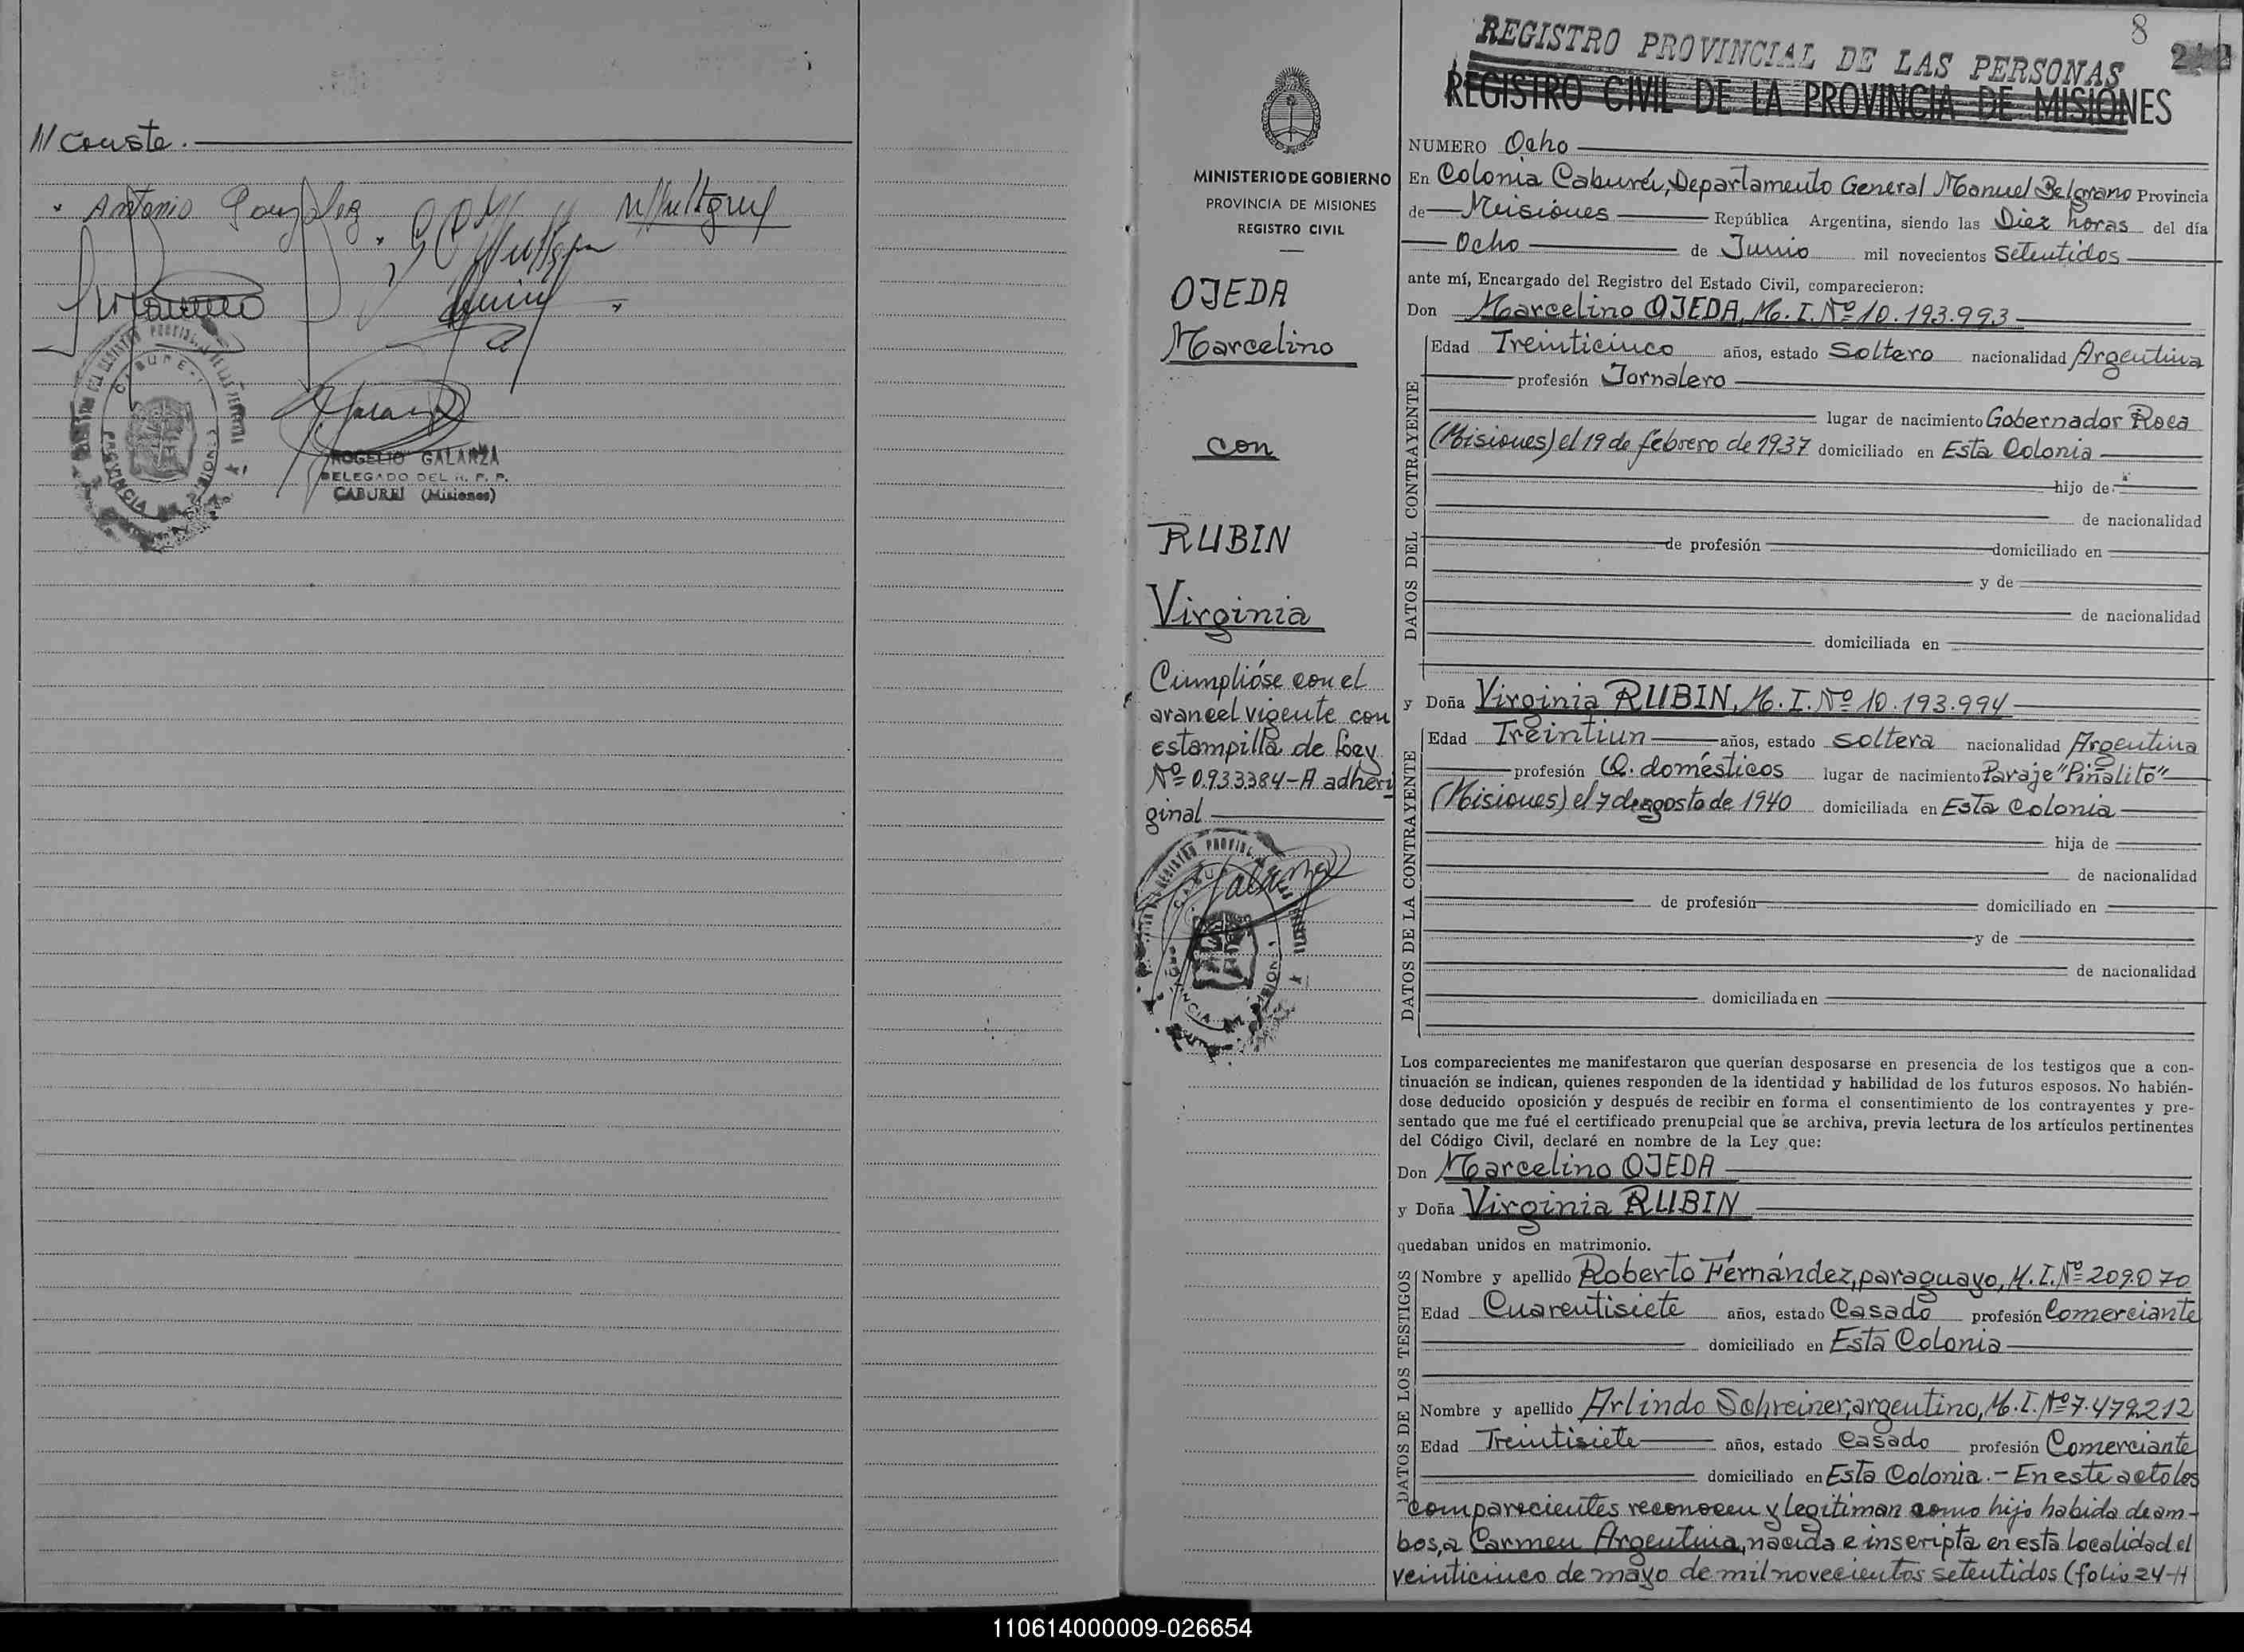 /// Conste.
Antonio Gonzalez
ROGELIO GALARZA
DELEGADO DEL R. P. P.
CABUREI (Misiones)
8
REGISTRO PROVINCIAL DE LAS PERSONAS
REGISTRO CIVIL DE LA PROVINCIA DE MISIONES
MINISTERIO DE GOBIERNO
PROVINCIA DE MISIONES
REGISTRO CIVIL
OJEDA
Marcelino
con
RUBIN
Virginia
Cumplióse con el
arancel vigente con
estampilla de Ley
Nº 0.933384-A adheri
ginal
NUMERO Ocho
En Colonia Caburei, Departamento General Manuel Belgrano Provincia
de Misiones República Argentina, siendo las Diez horas del día
Ocho de Junio mil novecientos Setentidos
ante mí, Encargado del Registro del Estado Civil, comparecieron:
Don Marcelino OJEDA, M. I. Nº 10.193.993
DATOS DEL CONTRAYENTE
Edad Treinticinco años, estado Soltero nacionalidad Argentina
profesión Jornalero
lugar de nacimiento Gobernador Roca
(Misiones) el 19 de febrero de 1937 domiciliado en Esta Colonia
hijo de
de nacionalidad
de profesión domiciliado en
y de
de nacionalidad
domiciliada en
y Doña Virginia RUBIN, M. I. Nº 10.193.994
DATOS DE LA CONTRAYENTE
Edad Treintiun años, estado soltera nacionalidad Argentina
profesión Q. domésticos lugar de nacimiento Paraje "Piñalito"
(Misiones) el 7 de agosto de 1940 domiciliada en Esta Colonia
hija de
de nacionalidad
de profesión domiciliado en
y de
de nacionalidad
domiciliada en
Los comparecientes me manifestaron que querían desposarse en presencia de los testigos que a con-
tinuación se indican, quienes responden de la identidad y habilidad de los futuros esposos. No habién-
dose deducido oposición y después de recibir en forma el consentimiento de los contrayentes y pre-
sentado que me fué el certificado prenupcial que se archiva, previa lectura de los artículos pertinentes
del Código Civil, declaré en nombre de la Ley que:
Don Marcelino OJEDA
y Doña Virginia RUBIN
quedaban unidos en matrimonio.
DATOS DE LOS TESTIGOS
Nombre y apellido Roberto Fernández, paraguayo, M. I. Nº 209.070
Edad Cuarentisiete años, estado Casado profesión Comerciante
domiciliado en Esta Colonia
Nombre y apellido Arlindo Schreiner, argentino, M. I. Nº 7.479.212
Edad Treintisiete años, estado Casado profesión Comerciante
domiciliado en Esta Colonia.- En este acto los
comparecientes reconocen y legitiman como hijo habida de am-
bos, a Carmen Argentina, nacida e inscripta en esta localidad el
veinticinco de mayo de mil novecientos setentidos (folio 24-H
110614000009-026654